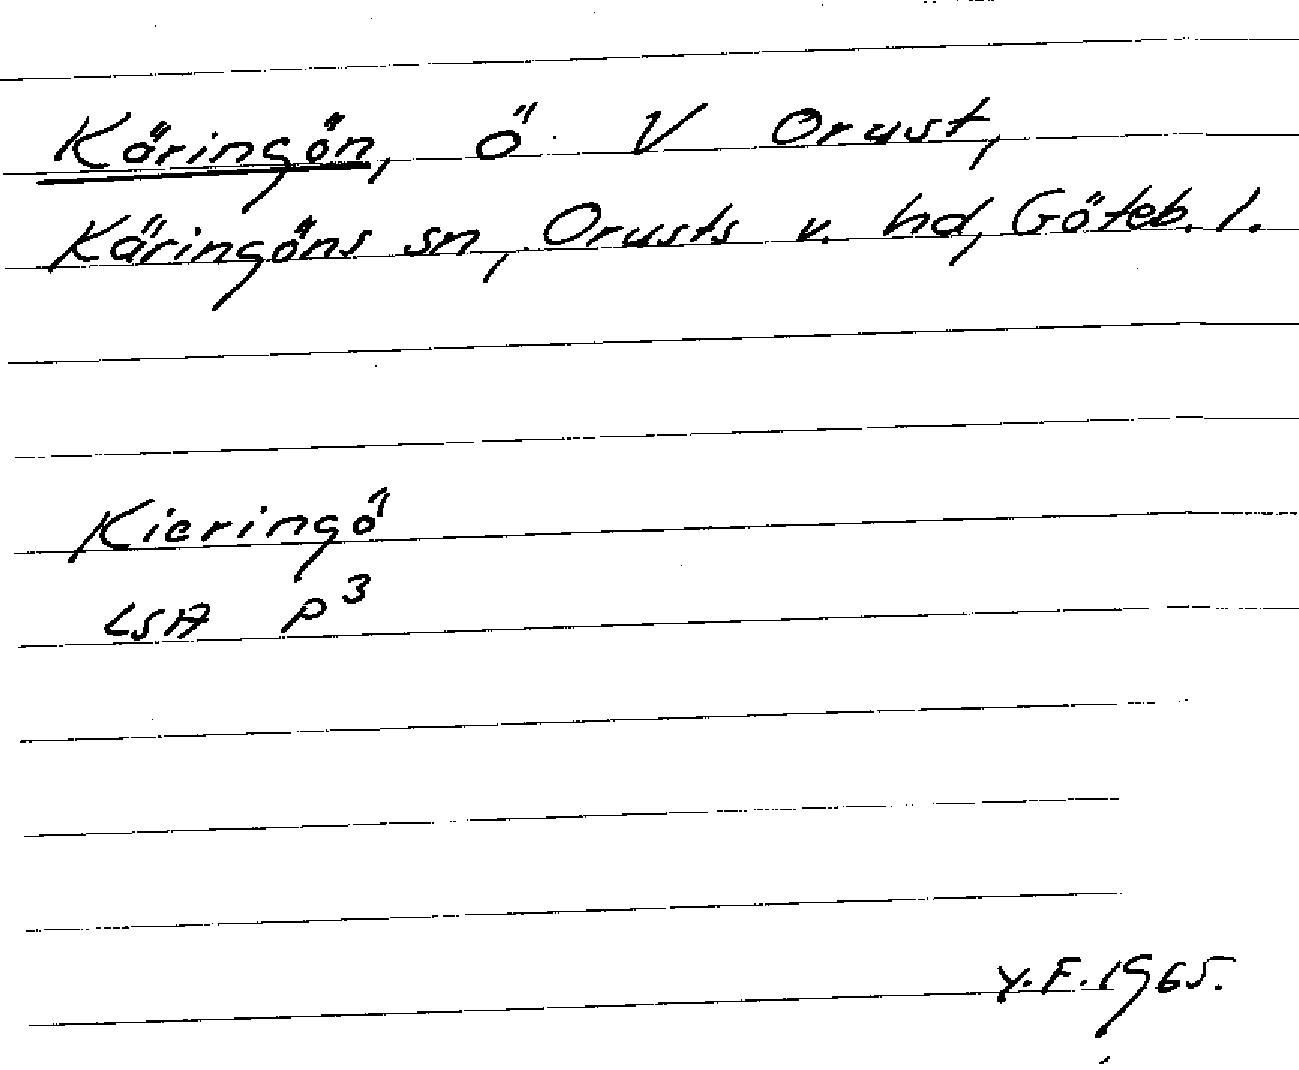 Käringön, ö V Orust,
Käringöns sn, Orusts v. hd, Göteb. l.
Kieringö
LSA P3
Y.F. 1965.